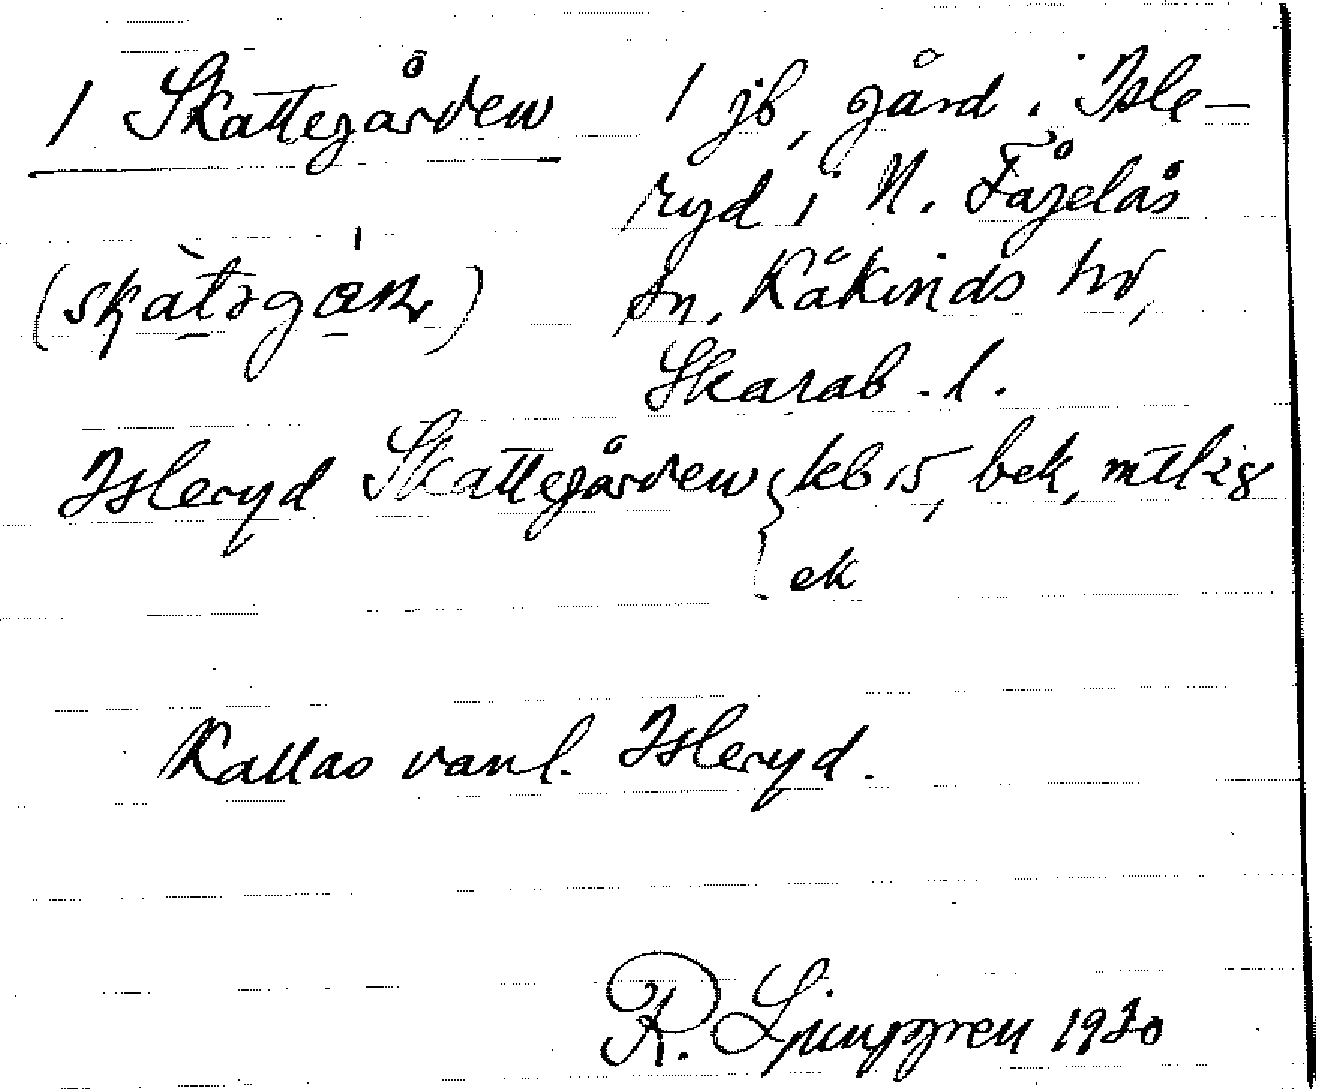 1 Skattegården 1 jb, gård i Isle-
ryd i N. Fågelås
(skàtəgɑ́ɳ) sn, Kåkinds hd,
Skarab. l.
Isleryd Skattegården { kb 15, bek, mtl
ek
Kallas vanl. Isleryd.
R. Ljunggren 1920